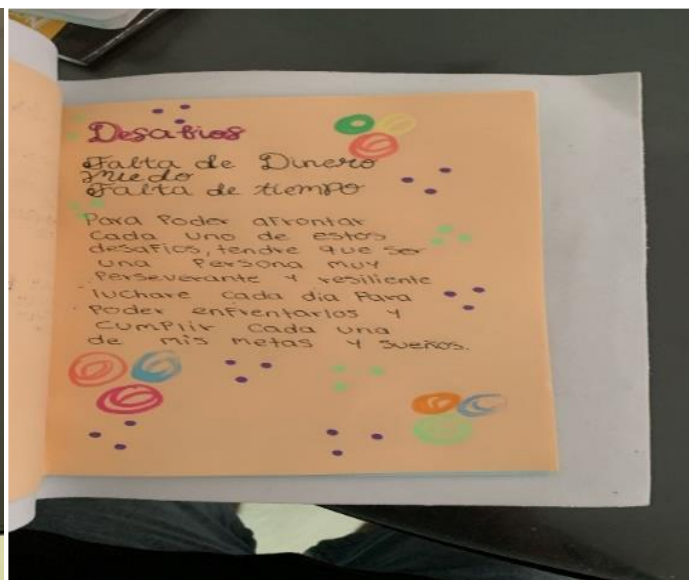 Desafios
Falta de Dinero
Miedo
Falta de tiempo
Para Poder afrontar
cada uno de estos
desafios, tendre que ser
una Persona muy
Perseverante y resiliente
luchare cada dia Para
Poder enfrentarlos y
cumplir cada una
de mis metas y sueños.